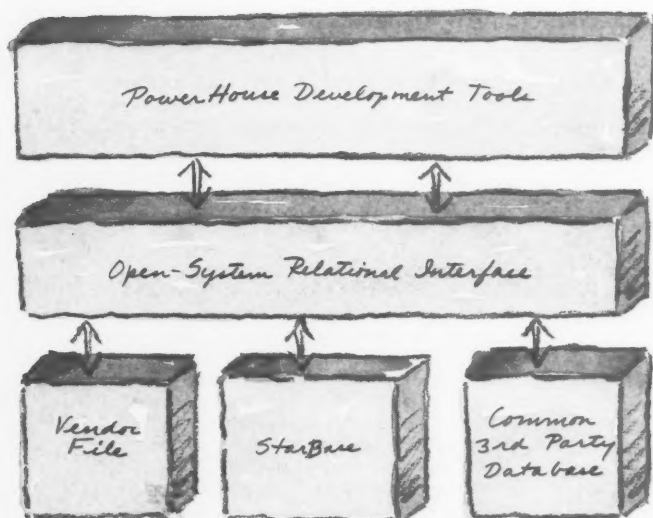 PowerHouse Development Tools
Open-System Relational Interface
Vendor
File
StarBase
Common
3rd Party
Database